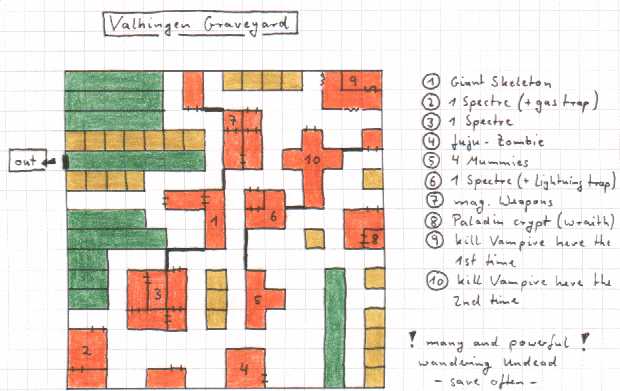 Valhingen Graveyard
out
1 Giant Skeleton
2 1 Spectre (+ gas trap)
3 1 Spectre
4 Juju-Zombie
5 4 Mummies
6 1 Spectre (+ Lightning trap)
7 mag. Weapons
8 Paladin crypt (wraith)
9 kill Vampire here the
1st time
10 kill Vampire here the
2nd time
! many and powerful !
wandering Undead
- save often -
9
7
10
1
6
8
3
5
2
4